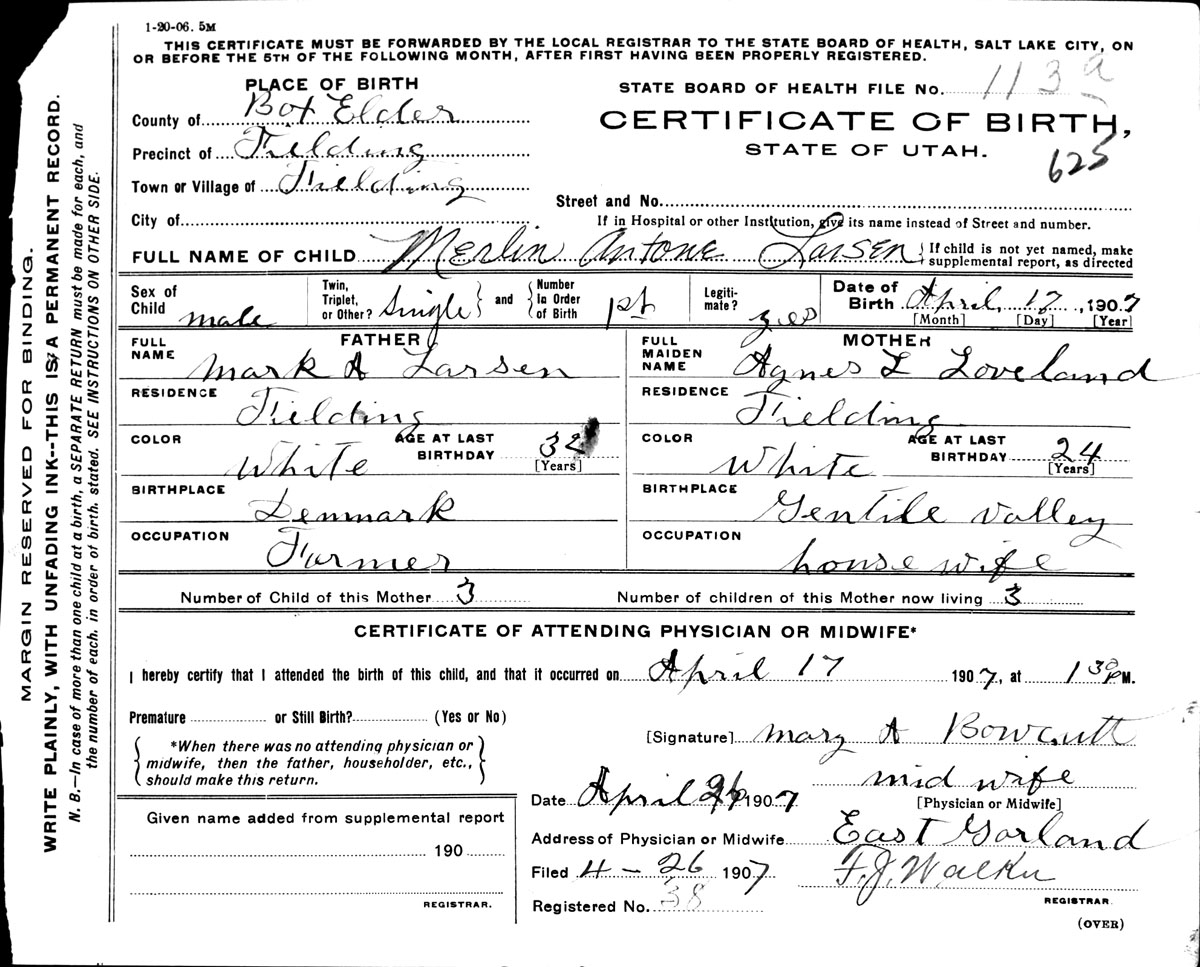 1-20-06. 5M
THIS CERTIFICATE MUST BE FORWARDED BY THE LOCAL REGISTRAR TO THE STATE BOARD OF HEALTH, SALT LAKE CITY, ON
OR BEFORE THE 5TH OF THE FOLLOWING MONTH, AFTER FIRST HAVING BEEN PROPERLY REGISTERED.
PLACE OF BIRTH
STATE BOARD OF HEALTH FILE No. 113 a
County of Box Elder
CERTIFICATE OF BIRTH,
STATE OF UTAH.
625
Precinct of Fielding
Town or Village of Fielding
Street and No.
City of
If in Hospital or other Institution, give its name instead of Street and number.
FULL NAME OF CHILD Merlin Antone Larsen { If child is not yet named, make
supplemental report, as directed
Sex of Child male
Twin, Triplet, or Other? Single } and { Number In Order of Birth 1st
Legiti-mate? yes
Date of Birth April 17, 1907
[Month] [Day] [Year]
FATHER
FULL NAME Mark A Larsen
RESIDENCE Fielding
COLOR White
AGE AT LAST BIRTHDAY 32
[Years]
BIRTHPLACE Denmark
OCCUPATION Farmer
MOTHER
FULL MAIDEN NAME Agnes L Loveland
RESIDENCE Fielding
COLOR White
AGE AT LAST BIRTHDAY 24
[Years]
BIRTHPLACE Gentile Valley
OCCUPATION house wife
Number of Child of this Mother 3 Number of children of this Mother now living 3
CERTIFICATE OF ATTENDING PHYSICIAN OR MIDWIFE*
I hereby certify that I attended the birth of this child, and that it occurred on April 17 1907, at 1 30 PM.
Premature or Still Birth? (Yes or No)
{ *When there was no attending physician or
midwife, then the father, householder, etc.,
should make this return. }
[Signature] Mary A Bowcutt
mid wife
[Physician or Midwife]
Date April 26 1907
Given name added from supplemental report
190
REGISTRAR.
Address of Physician or Midwife East Garland
Filed 4 - 26 1907 F. J. Walker
REGISTRAR.
Registered No. 38
(OVER)
MARGIN RESERVED FOR BINDING.
WRITE PLAINLY, WITH UNFADING INK--THIS IS A PERMANENT RECORD.
N. B.—In case of more than one child at a birth, a SEPARATE RETURN must be made for each, and
the number of each, in order of birth, stated. SEE INSTRUCTIONS ON OTHER SIDE.